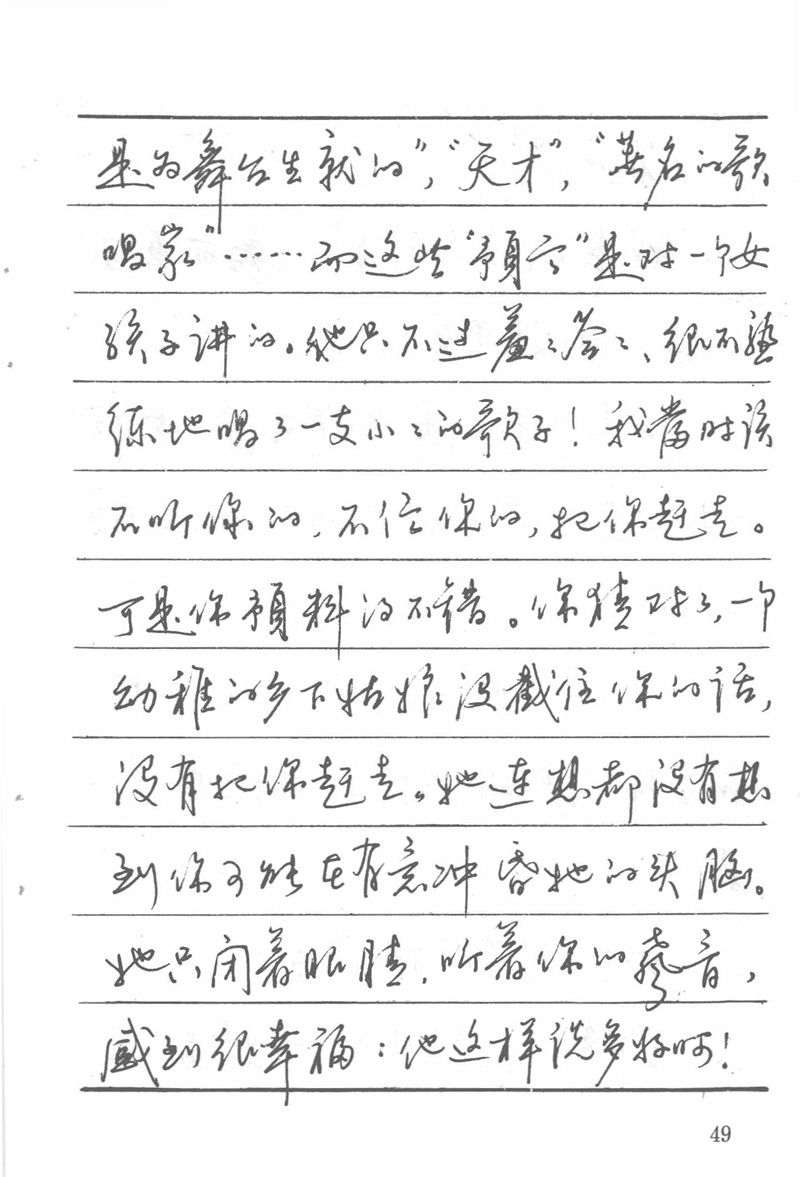 是为舞台生就的”，“天才”，“著名的歌
唱家”……而这些“预言”是对一个女
孩子讲的。她只不过羞羞答答、很不熟
练地唱了一支小小的歌子！我當时该
不听你的，不信你的，把你赶走。
可是你預料得不错。你猜对了，一个
幼稚的乡下姑娘没截住你的话，
没有把你赶走。她连想都没有想
到你可能在有意冲昏她的头脑。
她只闭着眼睛，听着你的聲音，
感到很幸福：他这样说多好呵！
49